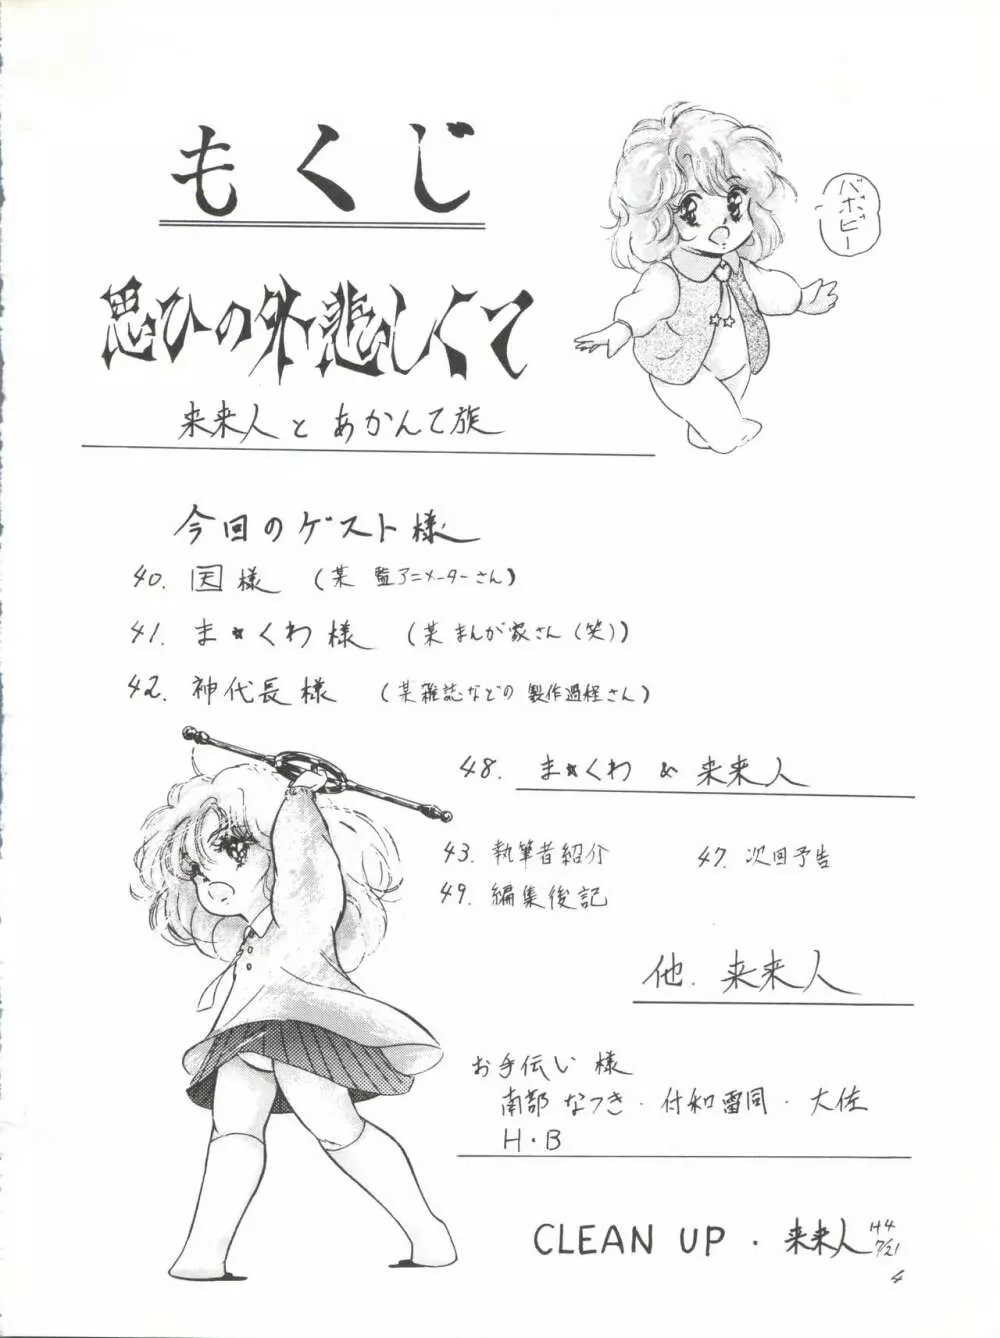 もくじ
バホッピー
思ひの外悲しくて
来来人とあかんて族
今回のゲスト様
40. 因様 (某 監アニメーターさん)
41. ま★くわ様 (某 まんが家さん(笑))
42. 神代長様 (某雑誌などの 製作過程さん)
48. ま★くわ & 来来人
43. 執筆者紹介 47. 次回予告
49. 編集後記
他. 来来人
お手伝い様
南部なつき・付和雷同・大佐
H・B
CLEAN UP・来来人 H4 7/21
4